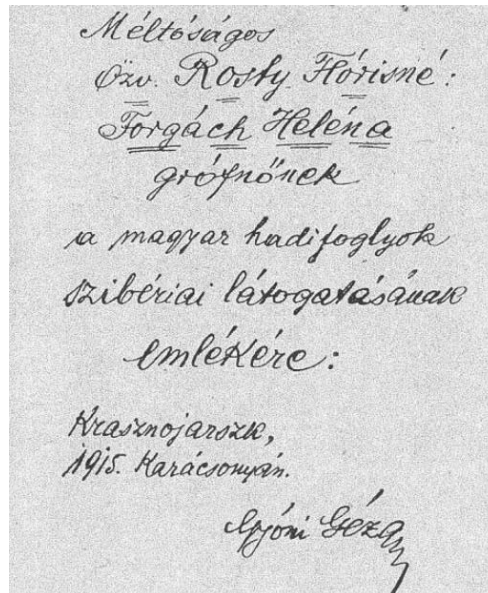 Méltóságos
Özv. Rosty Flórisné:
Forgách Heléna
grófnőnek
a magyar hadifoglyok
szibériai látogatásának
emlékére:
Krasznojarszk,
1915. Karácsonyán.
Gyóni Géza